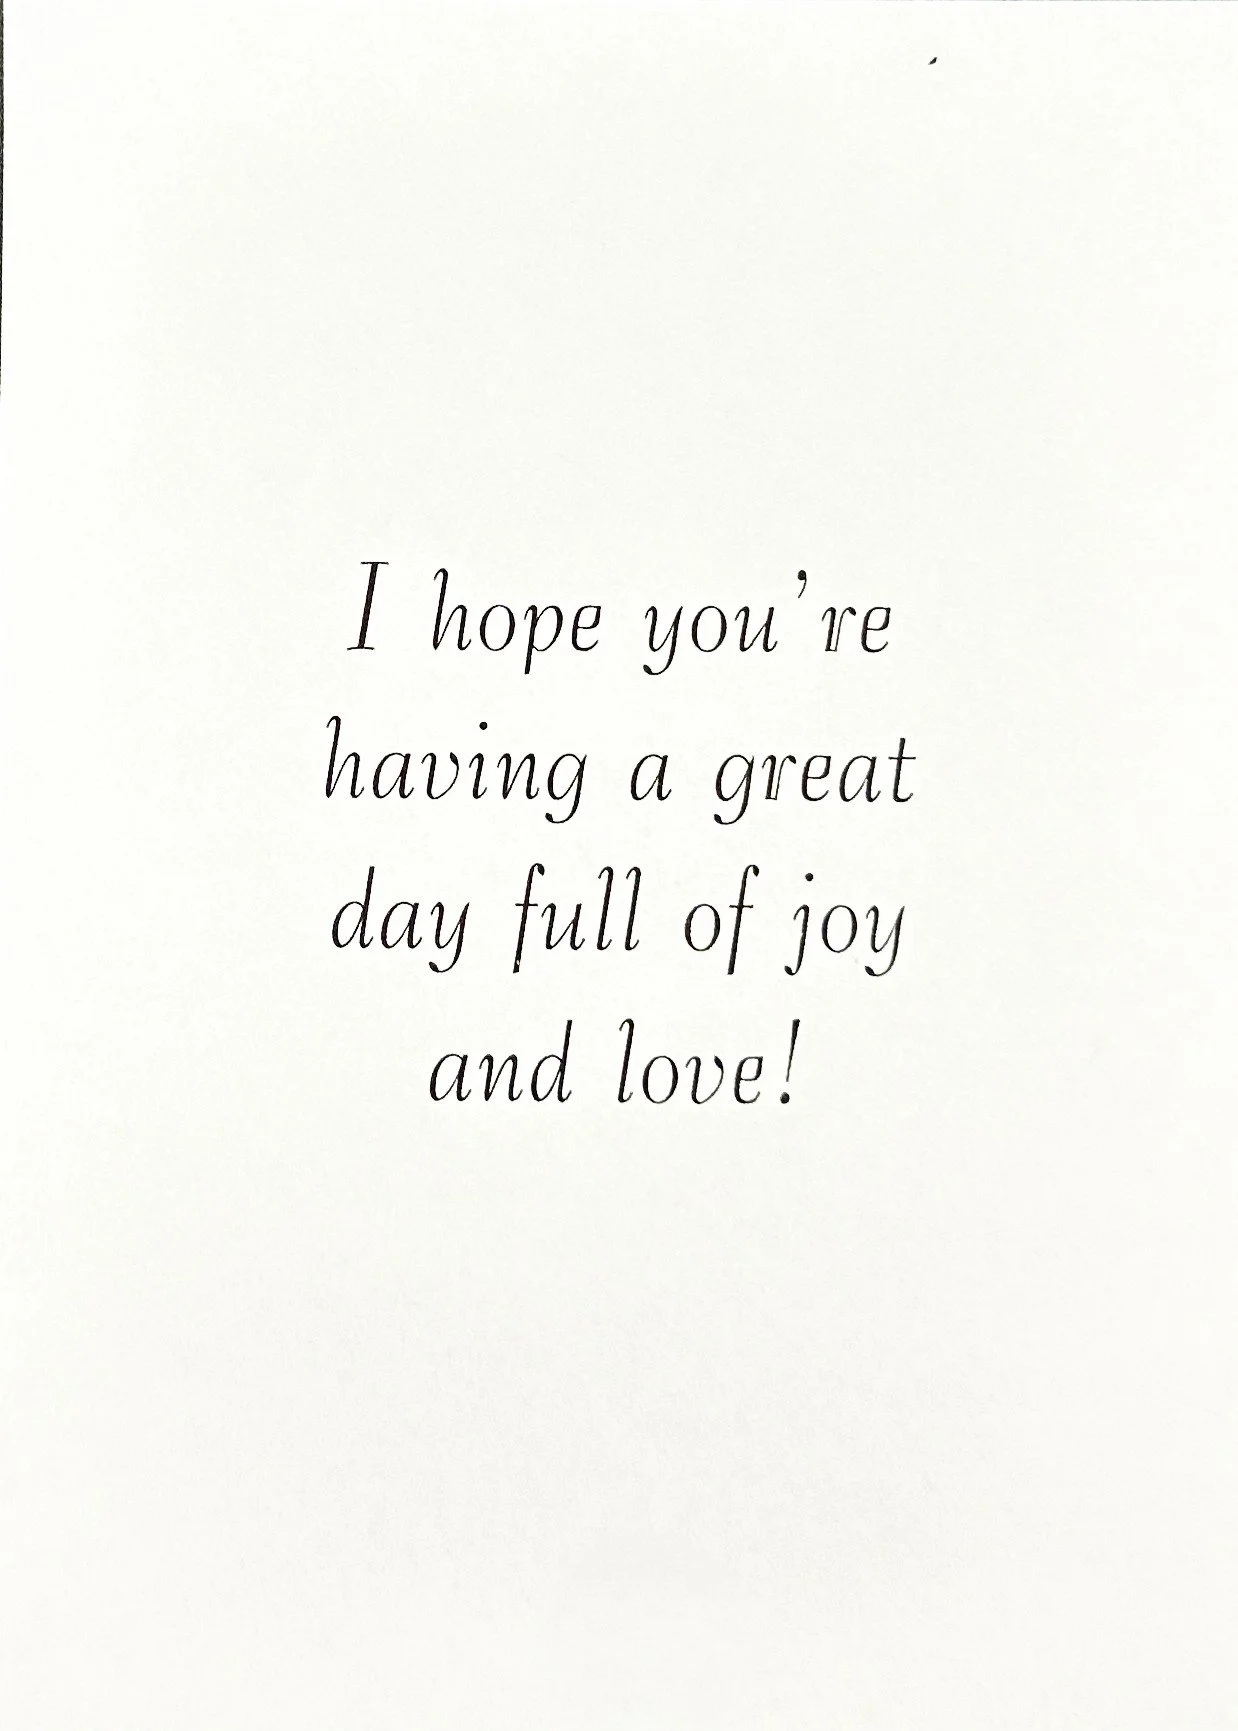 I hope you're
having a great
day full of joy
and love!